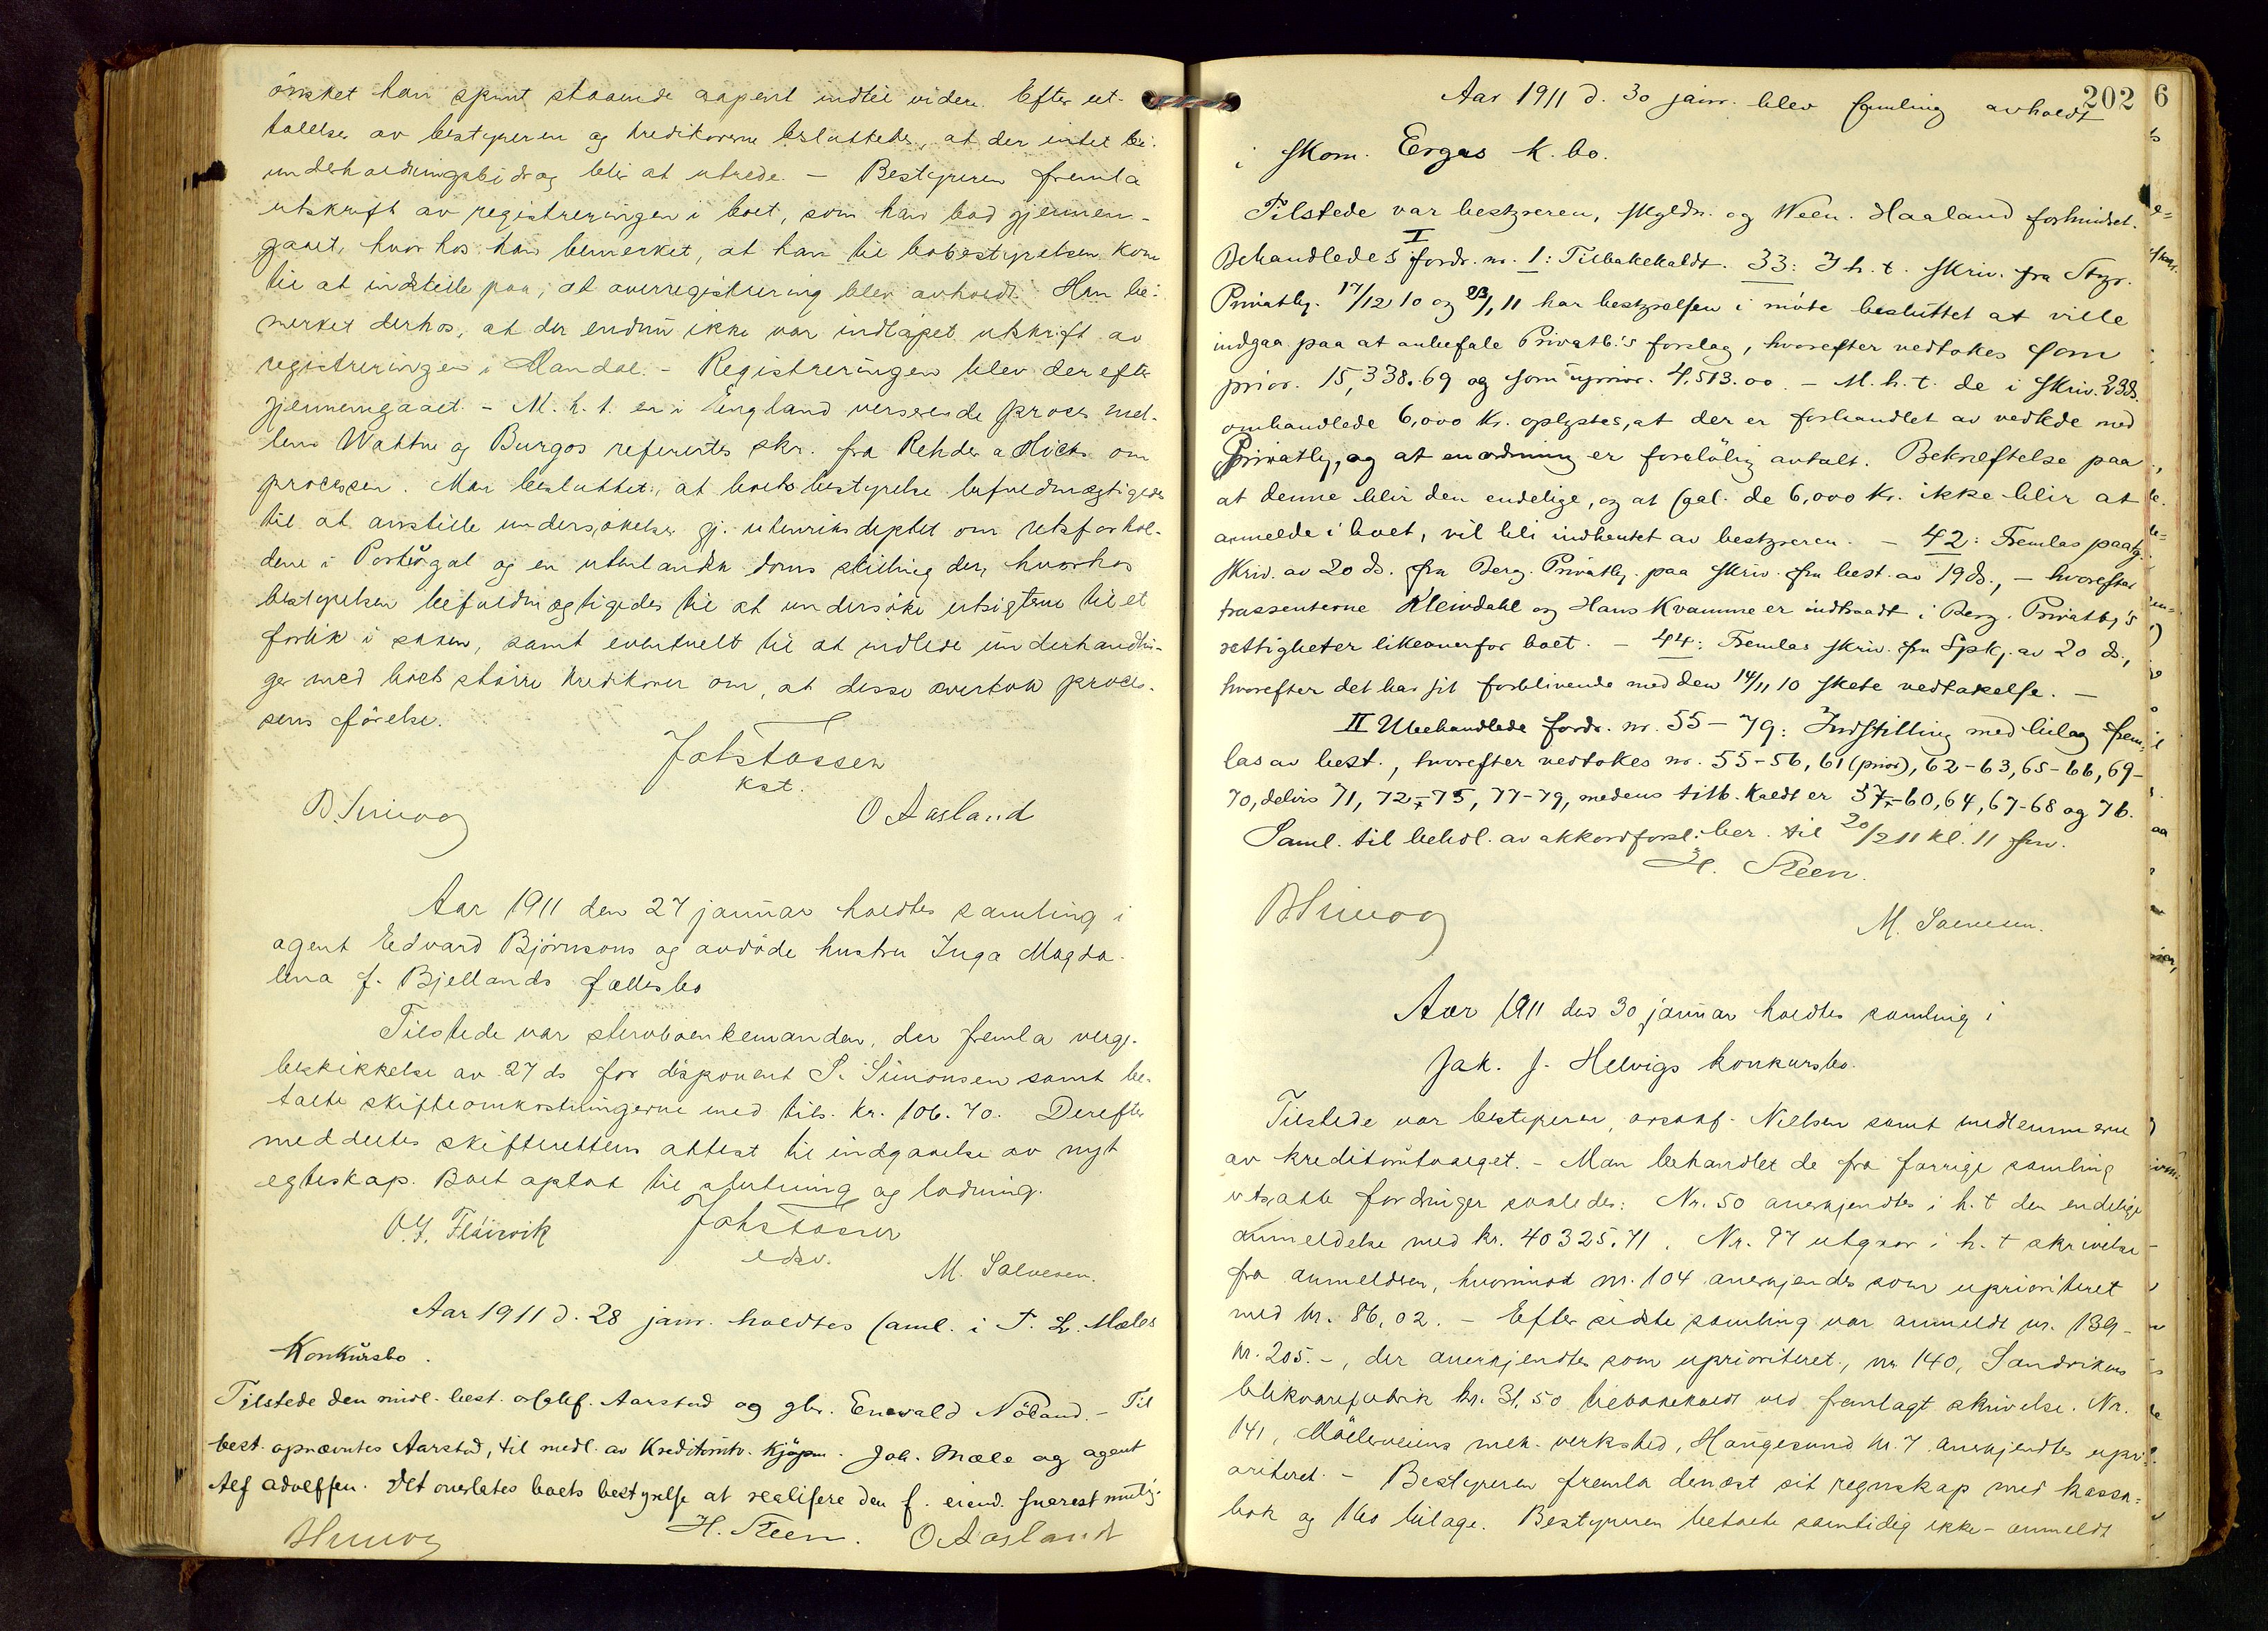 ønsket han spmt staaende aapent indtil videre. Efter ut-
talelse av bestyreren og kreditorerne besluttedes, at der intet bi-
underholdningsbidrag blir at utrede. – Bestyreren fremla
utskrift av registreringen i boet, som han bad gjennem-
gaaet, hvorhos han bemerket, at han til bobestyrelsen kom
til at indstille paa, at omregistrering blev avholdt. Han be-
merket derhos, at der endnu ikke var indløpet utskrift av
registreringen i Mandal. – Registreringen blev derefter
gjennemgaaet. – M. h. t. en i England verserende proces mel-
lem Wattne og Burgos refereres skr. fra Rehder a Hicks om
processen. Man besluttet, at boets bestyrelse befuldmægtigedes
til at anstille undersøkelser gj. utenriksdeptet om retsforhol-
dene i Portugal og en utenlandsk doms stilling der, hvorhos
bestyrelsen befuldmægtigedes til at undersøke utsigtene til et
forlik i saken, samt eventuelt til at indlede underhandlin-
ger med boets større kreditorer om, at disse overtok proces-
sens førelse.
Joh Tossen
kst.
O Aasland
Aar 1911 den 27 januar holdtes samling i
agent Edvard Bjørnsons og avdøde hustru Inga Magda-
lena f. Bjellands fællesbo
Tilstede var sterboenkemanden, der fremla verge-
beskikkelse av 27 ds for disponent S. Simonsen samt be-
talte skifteomkostningerne med tils. kr. 106.70. Derefter
meddeltes skifterettens attest til indgaaelse av nyt
egteskap. Boet oplot til slutning og lodning.
Joh Tossen
edsv.
M. Salvesen.
Aar 1911 d. 28 janr. holdtes saml. i T. L. Mæles
Konkursbo.
Tilstede den midl. best. orsakf. Aarstad og gbr. Enevald Nöland. – Til
best. opnævntes Aarstad, til medl. av Kreditorutv. Kjøpm. Joh. Mæle og agent
Alf Adolfsen. Det overlates boets bestyrelse at realisere den f. eiend. snarest mulig.
H. Steen. O Aasland
202 6
Aar 1911 d. 30 janr. blev samling avholdt
i skom. Ergas K. bo.
Tilstede var bestyreren, skyldn. og Ween. Haaland forhindret.
I
Behandledes fordr. nr. 1: Tilbakekaldt. 33: I h. t. skriv. fra Bgs.
Privatbg. 17/12 10 og 23/1 11 har bestyrelsen i møte besluttet at ville
indgaa paa at anbefale Privatb.'s forslag, hvorefter vedtokes som
prior. 15,338.69 og som uprior. 4,513.00. – M. h. t. de i skriv. 23ds.
omhandlede 6,000 Kr. oplystes, at der er forhandlet av vedkde med
Privatbg, og at en ordning er foreløbig avtalt. Bekræftelse paa
at denne blir den endelige, og at saal. de 6,000 Kr. ikke blir at
anmelde i boet, vil bli indhentet av bestyreren. – 42: Fremlas paateg.
skriv. av 20 ds. fra Berg. Privatbg. paa skriv. fra best. av 19 ds., – hvorefter
trassenterne Kleivdahl og Hans Kvamme er indtraadt i Berg. Privatbg's
rettigheter likeoverfor boet. – 44: Fremlas skriv. fra Spk. av 20 ds.,
hvorefter det har sit forblivende med den 14/11 10 skete vedtakelse. –
II Ubehandlede fordr. nr. 55–79: Indstilling med bilag frem-
las av best., hvorefter vedtokes nr. 55–56, 61 (prior), 62–63, 65–66, 69–
70, delvis 71, 72–75, 77–79, medens tilb. kaldt er 57–60, 64, 67–68 og 76.
Saml. til behdl. av akkordforsl. ber. til 20/2 11 kl. 11 fm.
H. Steen.
M. Salvesen.
Aar 1911 den 30 januar holdtes samling i
Jak. J. Helvigs konkursbo.
Tilstede var bestyreren, orsakf. Nielsen samt medlemmerne
av kreditorutvalget. – Man behandlet de fra forrige samling
utsatte fordringer saaledes: Nr. 50 anerkjendtes i h. t den endelige
anmeldelse med kr. 40325.71. Nr. 97 utgaar i h. t skrivelse
fra anmelderen, hvorimot nr. 104 anerkjendes som uprioriteret
med kr. 86,02. – Efter sidste samling var anmeldt nr. 139 –
kr. 205.–, der anerkjendtes som uprioriteret, nr 140, Sandvikens
blikvarefabrik kr. 31.50 tilbakekaldt ved fremlagt skrivelse. Nr.
141, Mæleveiens mek. verksted, Haugesund kr. 7 anerkjendtes upri-
oriteret. – Bestyreren fremla dernæst sit regnskap med kassa-
bok og 160 bilage. Bestyreren betalte samtidig ikke-anmeldt